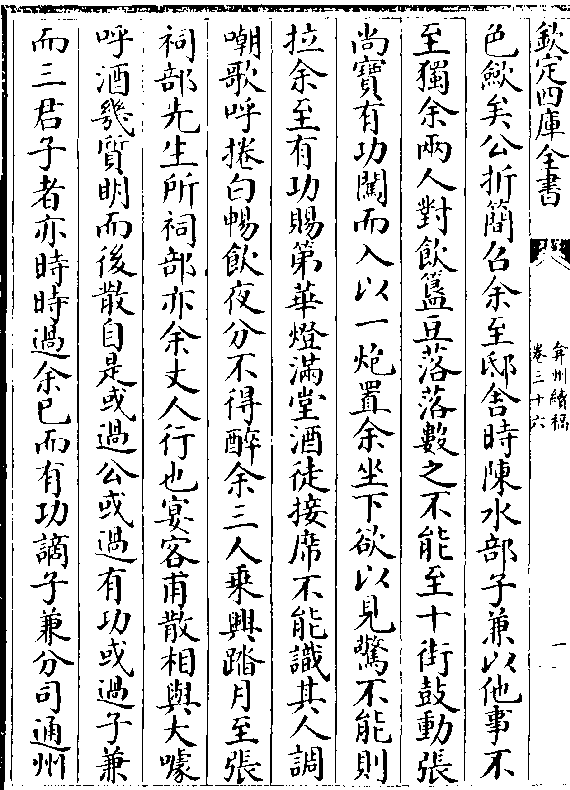 欽定四庫全書
弇州續稿
卷三十六
一
色歛矣公折簡召余至邸舍時陳水部子兼以他事不
至獨余兩人對飲簋豆落落數之不能至十街鼓動張
尚寶有功闖而入以一炮置余坐下欲以見驚不能則
拉余至有功賜第華燈滿堂酒徒接席不能識其人調
嘲歌呼捲白暢飲夜分不得醉余三人乗興踏月至張
祠部先生所祠部亦余丈人行也宴客甫散相與大噱
呼酒幾質明而後散自是或過公或過有功或過子兼
而三君子者亦時時過余已而有功謫子兼分司通州